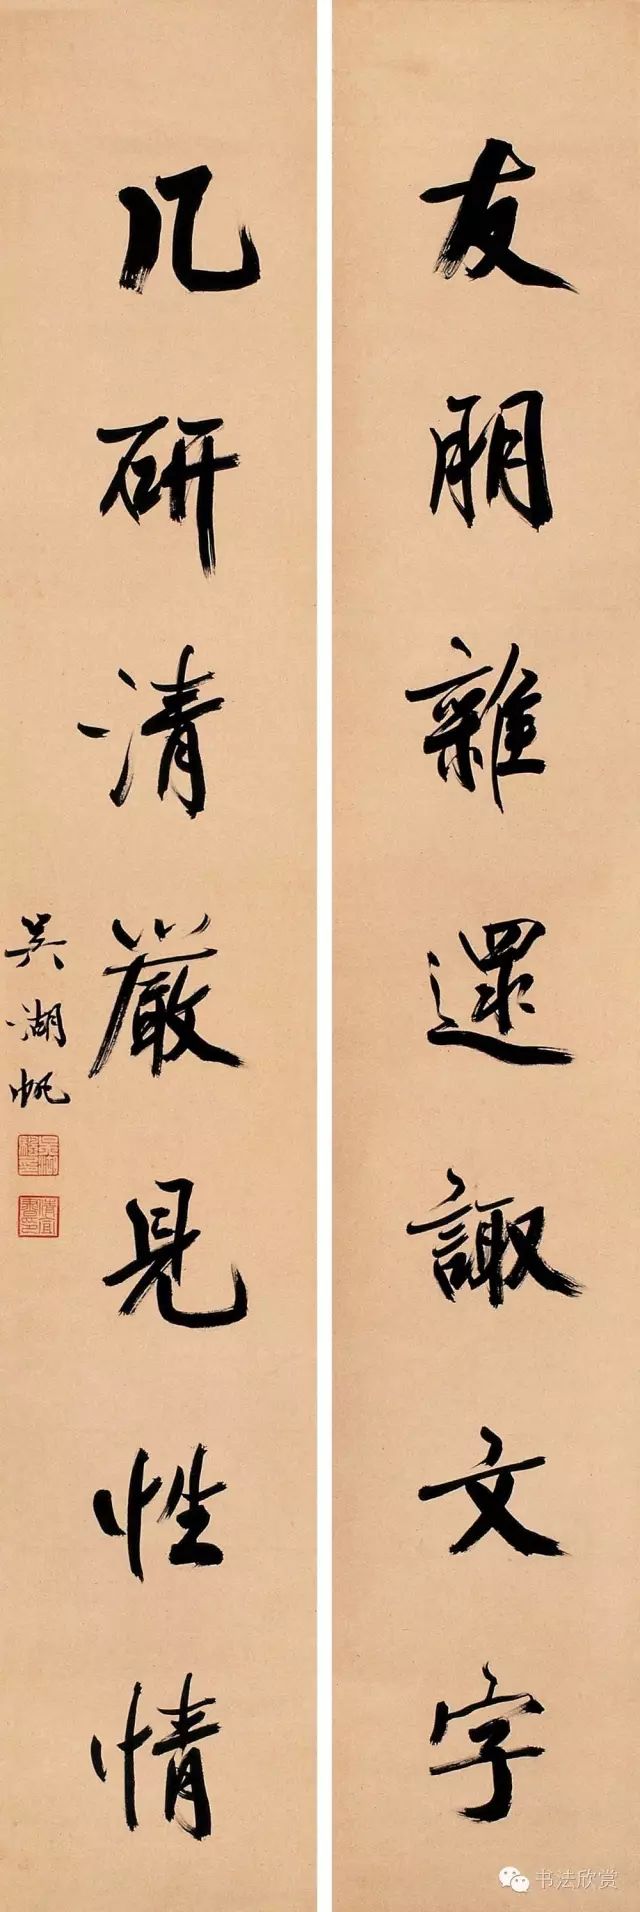 友朋雜還諏文字
几研清嚴見性情
吴湖帆
书法欣赏